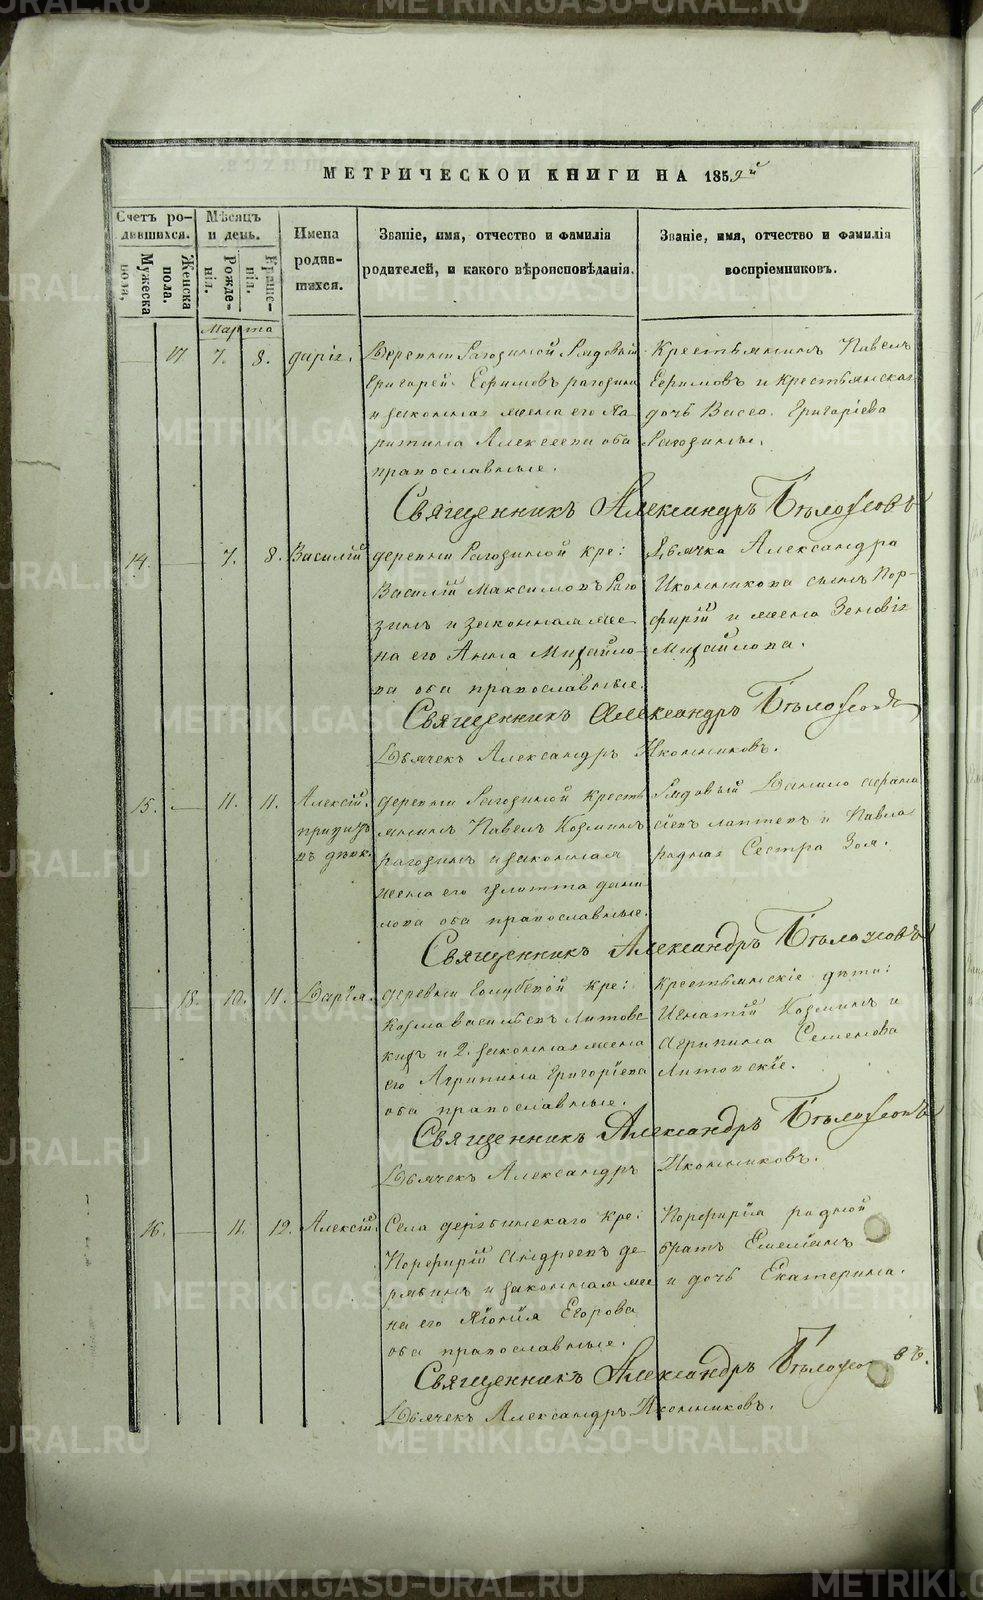 МЕТРИЧЕСКОЙ КНИГИ НА 1859й
Счетъ родившихся.
Мужеска пола.
Женска пола.
Мѣсяцъ и день.
Рожденія.
Крещенія.
Имена родившихся.
Званіе, имя, отчество и фамилія родителей, и какого вѣроисповѣданія.
Званіе, имя, отчество и фамилія воспріемниковъ.
Марта
17. 7. 8. Дарія.
Деревни Рагозиной Рядовый
Григорей Ефимовъ рагозинъ
и законная жена его Ха-
ритина Алексеева оба
православные.
Крестьянинъ Павелъ
Ефимовъ и крестьянская
дочь Васса Григоріева
Рагозины.
Священникъ Александръ Бѣлозеровъ
14. 7. 8. Василій
деревни Рагозиной кре:
Василій Максимовъ Раго
зинъ и законная же-
на его Анна Михайло-
ва оба православные.
Дьячка Александра
Иконникова сынъ Пор-
фирій и жена Зеновія
Михайлова.
Священникъ Александръ
Дьячекъ Александръ Иконниковъ.
15. 11. 11. Алексій.
деревни Рагозиной кресть
янинъ Павелъ Козминъ
рагозинъ и законная
жена его Улитта дани
лова оба православные.
Рядовый Данило Афана
сіевъ лаптевъ и Павла
родная Сестра Зоя.
Священникъ Александръ
18. 10. 11. Дарія.
деревни Голубевой кре:
Козма васильевъ Литовс
кихъ и 2. законная жена
его Агрипина Григоріева
оба православные.
Крестьянскіе дѣти:
Игнатій Козминъ и
Агрипина Семенова
Литовскіе.
Священникъ Александръ
Дьячекъ Александръ Иконниковъ.
16. 11. 12. Алексій.
Села дерябинскаго кре:
Порфирій Андреевъ де
рябинъ и законная же
на его Егорова
оба православные.
Порфирія родной
братъ Емельянъ
и дочь Екатерина.
Священникъ Александръ
Дьячекъ Александръ Иконниковъ.
METRIKI.GASO-URAL.RU